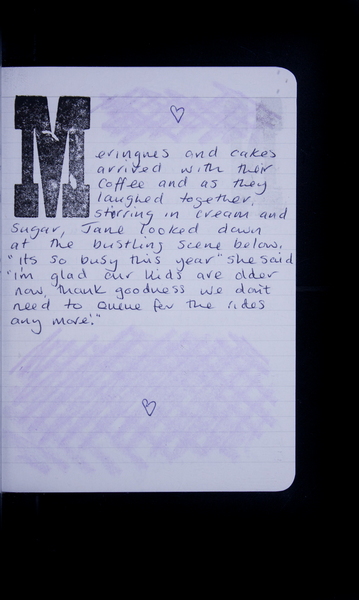 Meringues and cakes
arrived with their
coffee and as they
laughed together,
stirring in cream and
sugar, Jane looked down
at the bustling scene below.
"its so busy this year" she said
"i'm glad our kids are older
now, thank goodness we don't
need to queue for the rides
any more."